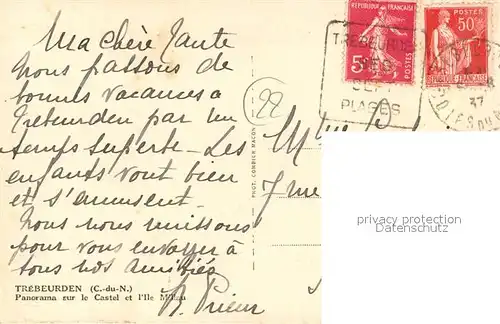 Ma chère Tante
Nous passons de
bonnes vacances à
Trebeurden par un
temps superbe - Les
enfants vont bien
et s'amusent.
Nous nous unissons
pour vous envoyer à
tous nos amitiés
R. Prieur
TRÉBEURDEN (C.-du-N.)
Panorama sur le Castel et l'Ile Milau
22
PHOT. COMBIER MACON
RÉPUBLIQUE FRANÇAISE
5
POSTES
POSTES
50
RÉPUBLIQUE FRANÇAISE
TREBEURDEN
SES
PLAGES
37
privacy protection
Datenschutz